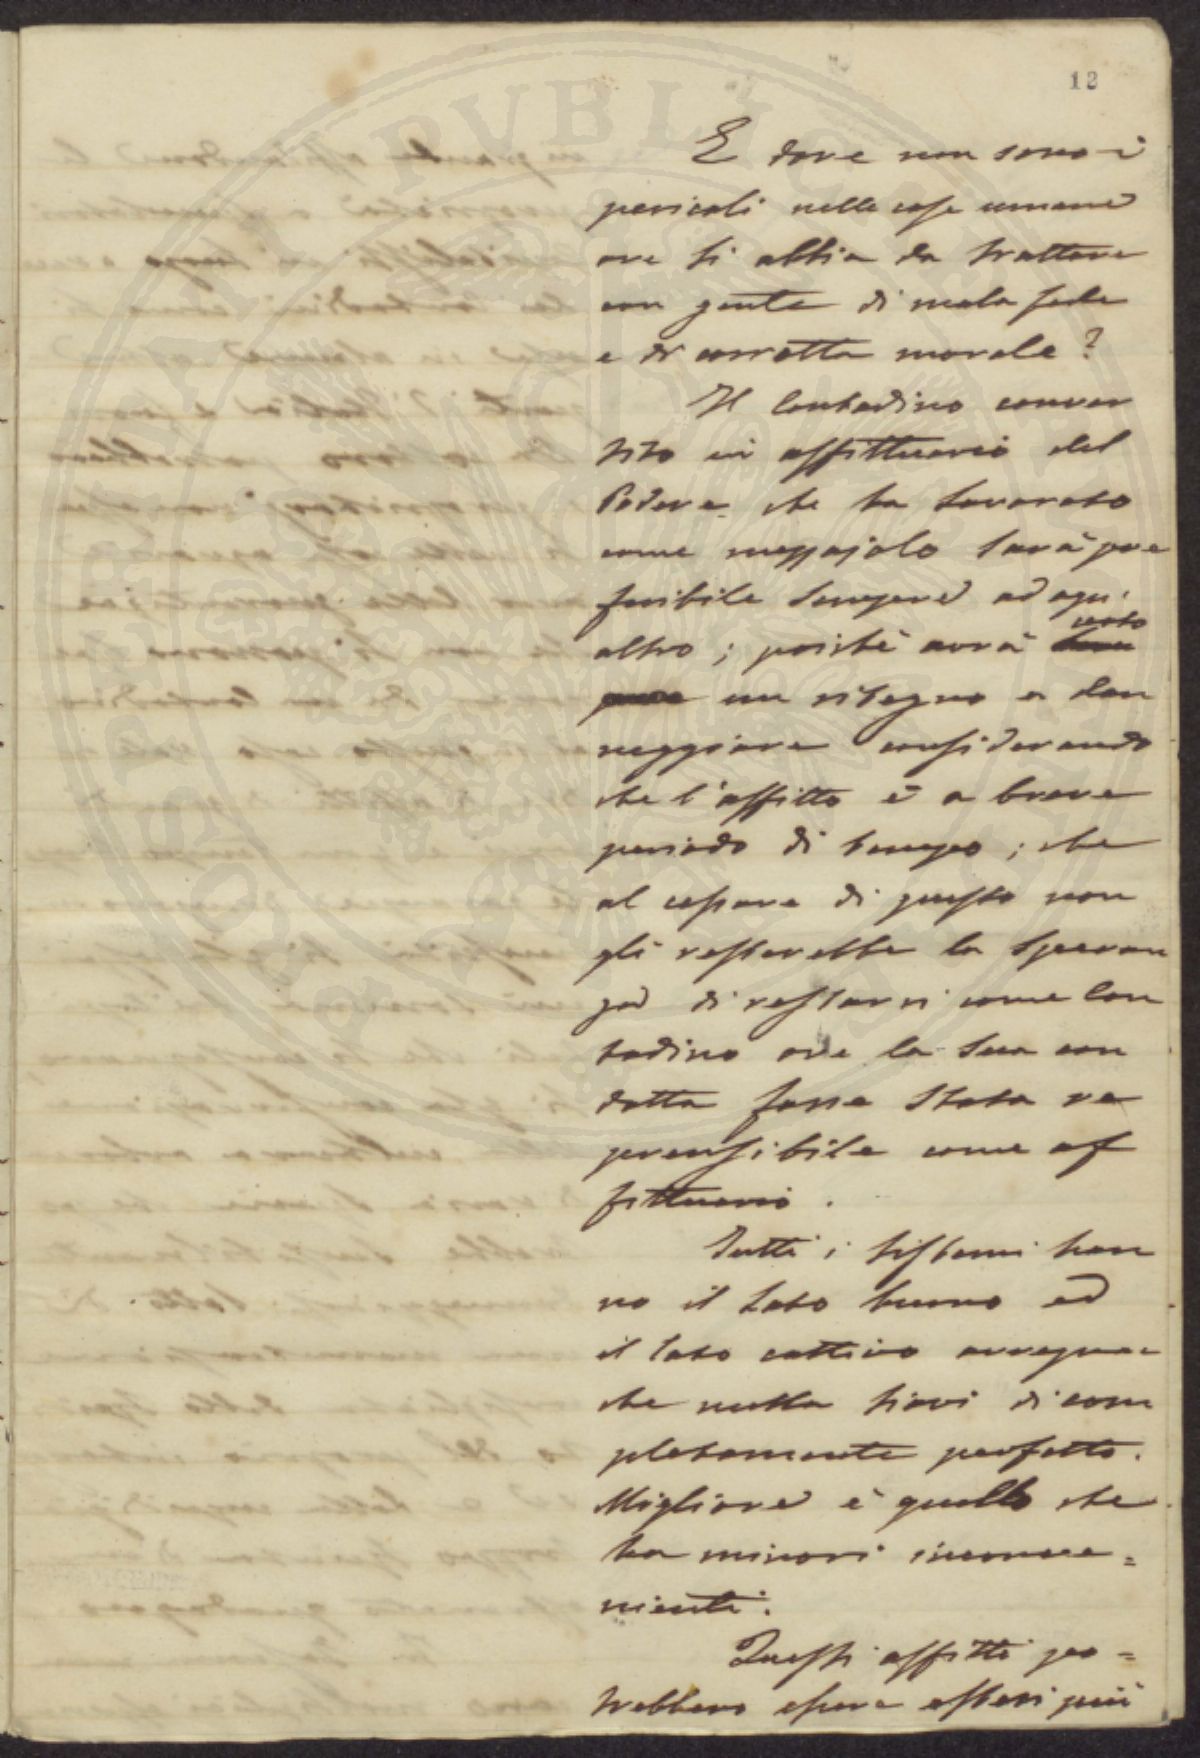 12
E dove non sono i
pericoli nelle cose umane
ove si abbia da trattare
con gente di mala fede
e di corrotta morale?
Il contadino conver
tito in affittuario del
Podere che ha lavorato
come mezzajolo sarà pre
feribile sempre ad ogni
altro; poichè avrà certo
un ritegno a dan
neggiare considerando
che l'affitto è a breve
periodo di tempo; che
al cessare di questo non
gli resterebbe la speran
za di restarvi come con
tadino ove la sua con
dotta fosse stata re
prensibile come af
fittuario.
Tutti i sistemi han
no il lato buono ed
il lato cattivo avvegna=
che nulla siavi di com
pletamente perfetto.
Migliore è quello che
ha minori inconve=
nienti.
Questi affitti po=
trebbero essere estesi più